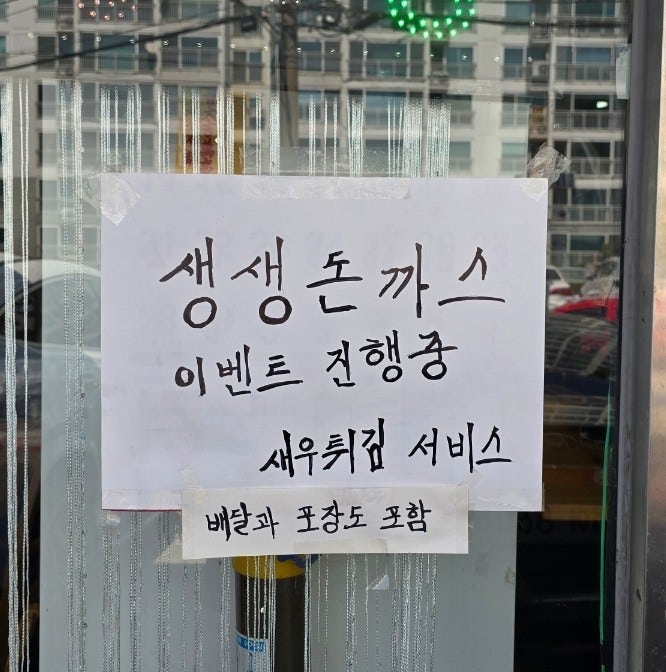 생생돈까스
이벤트 진행중
새우튀김 서비스
배달과 포장도 포함